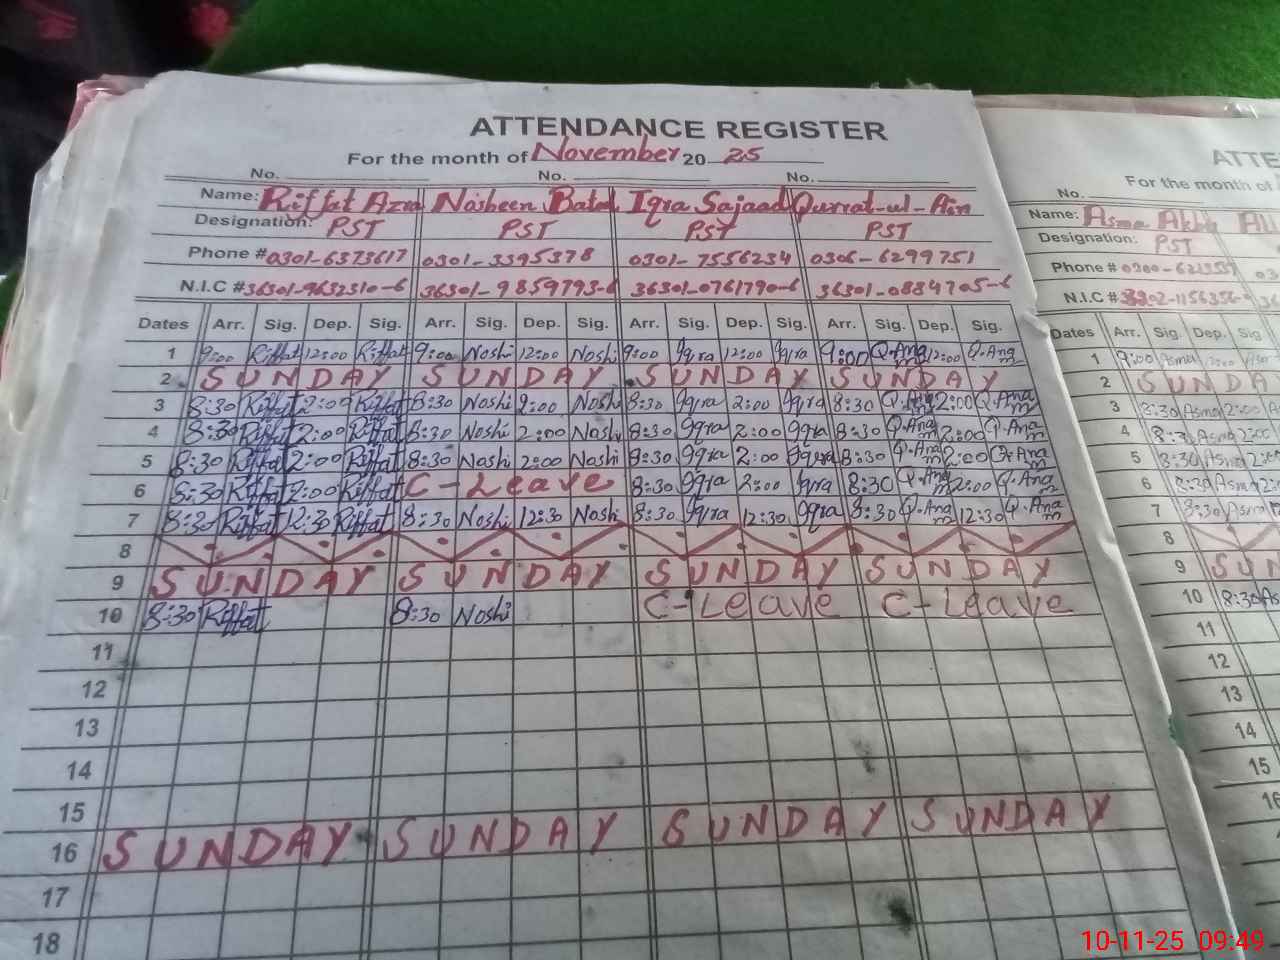 ATTENDANCE REGISTER
For the month of November 20 25
No. No. No.
Name: Riffat Azra Nosheen Batool Iqra Sajaad Qurrat-ul-Ain
Designation: PST PST PST PST
Phone # 0301-6373617 0301-3395378 0301-7556234 0306-6299751
N.I.C # 36301-9632310-6 36301-9859793-6 36301-0761790-6 36301-0884705-6
Dates Arr. Sig. Dep. Sig. Arr. Sig. Dep. Sig. Arr. Sig. Dep. Sig. Arr. Sig. Dep. Sig.
1 9:00 Riffat 12:00 Riffat 9:00 Noshi 12:00 Noshi 9:00 Iqra 12:00 Iqra 9:00 Q.Anam 12:00 Q.Anam
2 SUNDAY SUNDAY SUNDAY SUNDAY
3 8:30 Riffat 2:00 Riffat 8:30 Noshi 2:00 Noshi 8:30 Iqra 2:00 Iqra 8:30 Q.Anam 2:00 Q.Anam
4 8:30 Riffat 2:00 Riffat 8:30 Noshi 2:00 Noshi 8:30 Iqra 2:00 Iqra 8:30 Q.Anam 2:00 Q.Anam
5 8:30 Riffat 2:00 Riffat 8:30 Noshi 2:00 Noshi 8:30 Iqra 2:00 Iqra 8:30 Q.Anam 2:00 Q.Anam
6 8:30 Riffat 2:00 Riffat C-Leave 8:30 Iqra 2:00 Iqra 8:30 Q.Anam 2:00 Q.Anam
7 8:30 Riffat 12:30 Riffat 8:30 Noshi 12:30 Noshi 8:30 Iqra 12:30 Iqra 8:30 Q.Anam 12:30 Q.Anam
8
9 SUNDAY SUNDAY SUNDAY SUNDAY
10 8:30 Riffat 8:30 Noshi C-Leave C-Leave
11
12
13
14
15
16 SUNDAY SUNDAY SUNDAY SUNDAY
17
18
ATTE
For the month of
No.
Name: Asma
Designation: PST
Phone #
N.I.C #
Dates Arr. Sig. Dep. Sig.
1 9:00 Asma
2 SUNDA
3 8:30 Asma 2:00
4 8:30 Asma 2:00
5 8:30 Asma
6 8:30 Asma
7 8:30 Asma
8
9 SUN
10 8:30
11
12
13
14
15
16
10-11-25 09:49